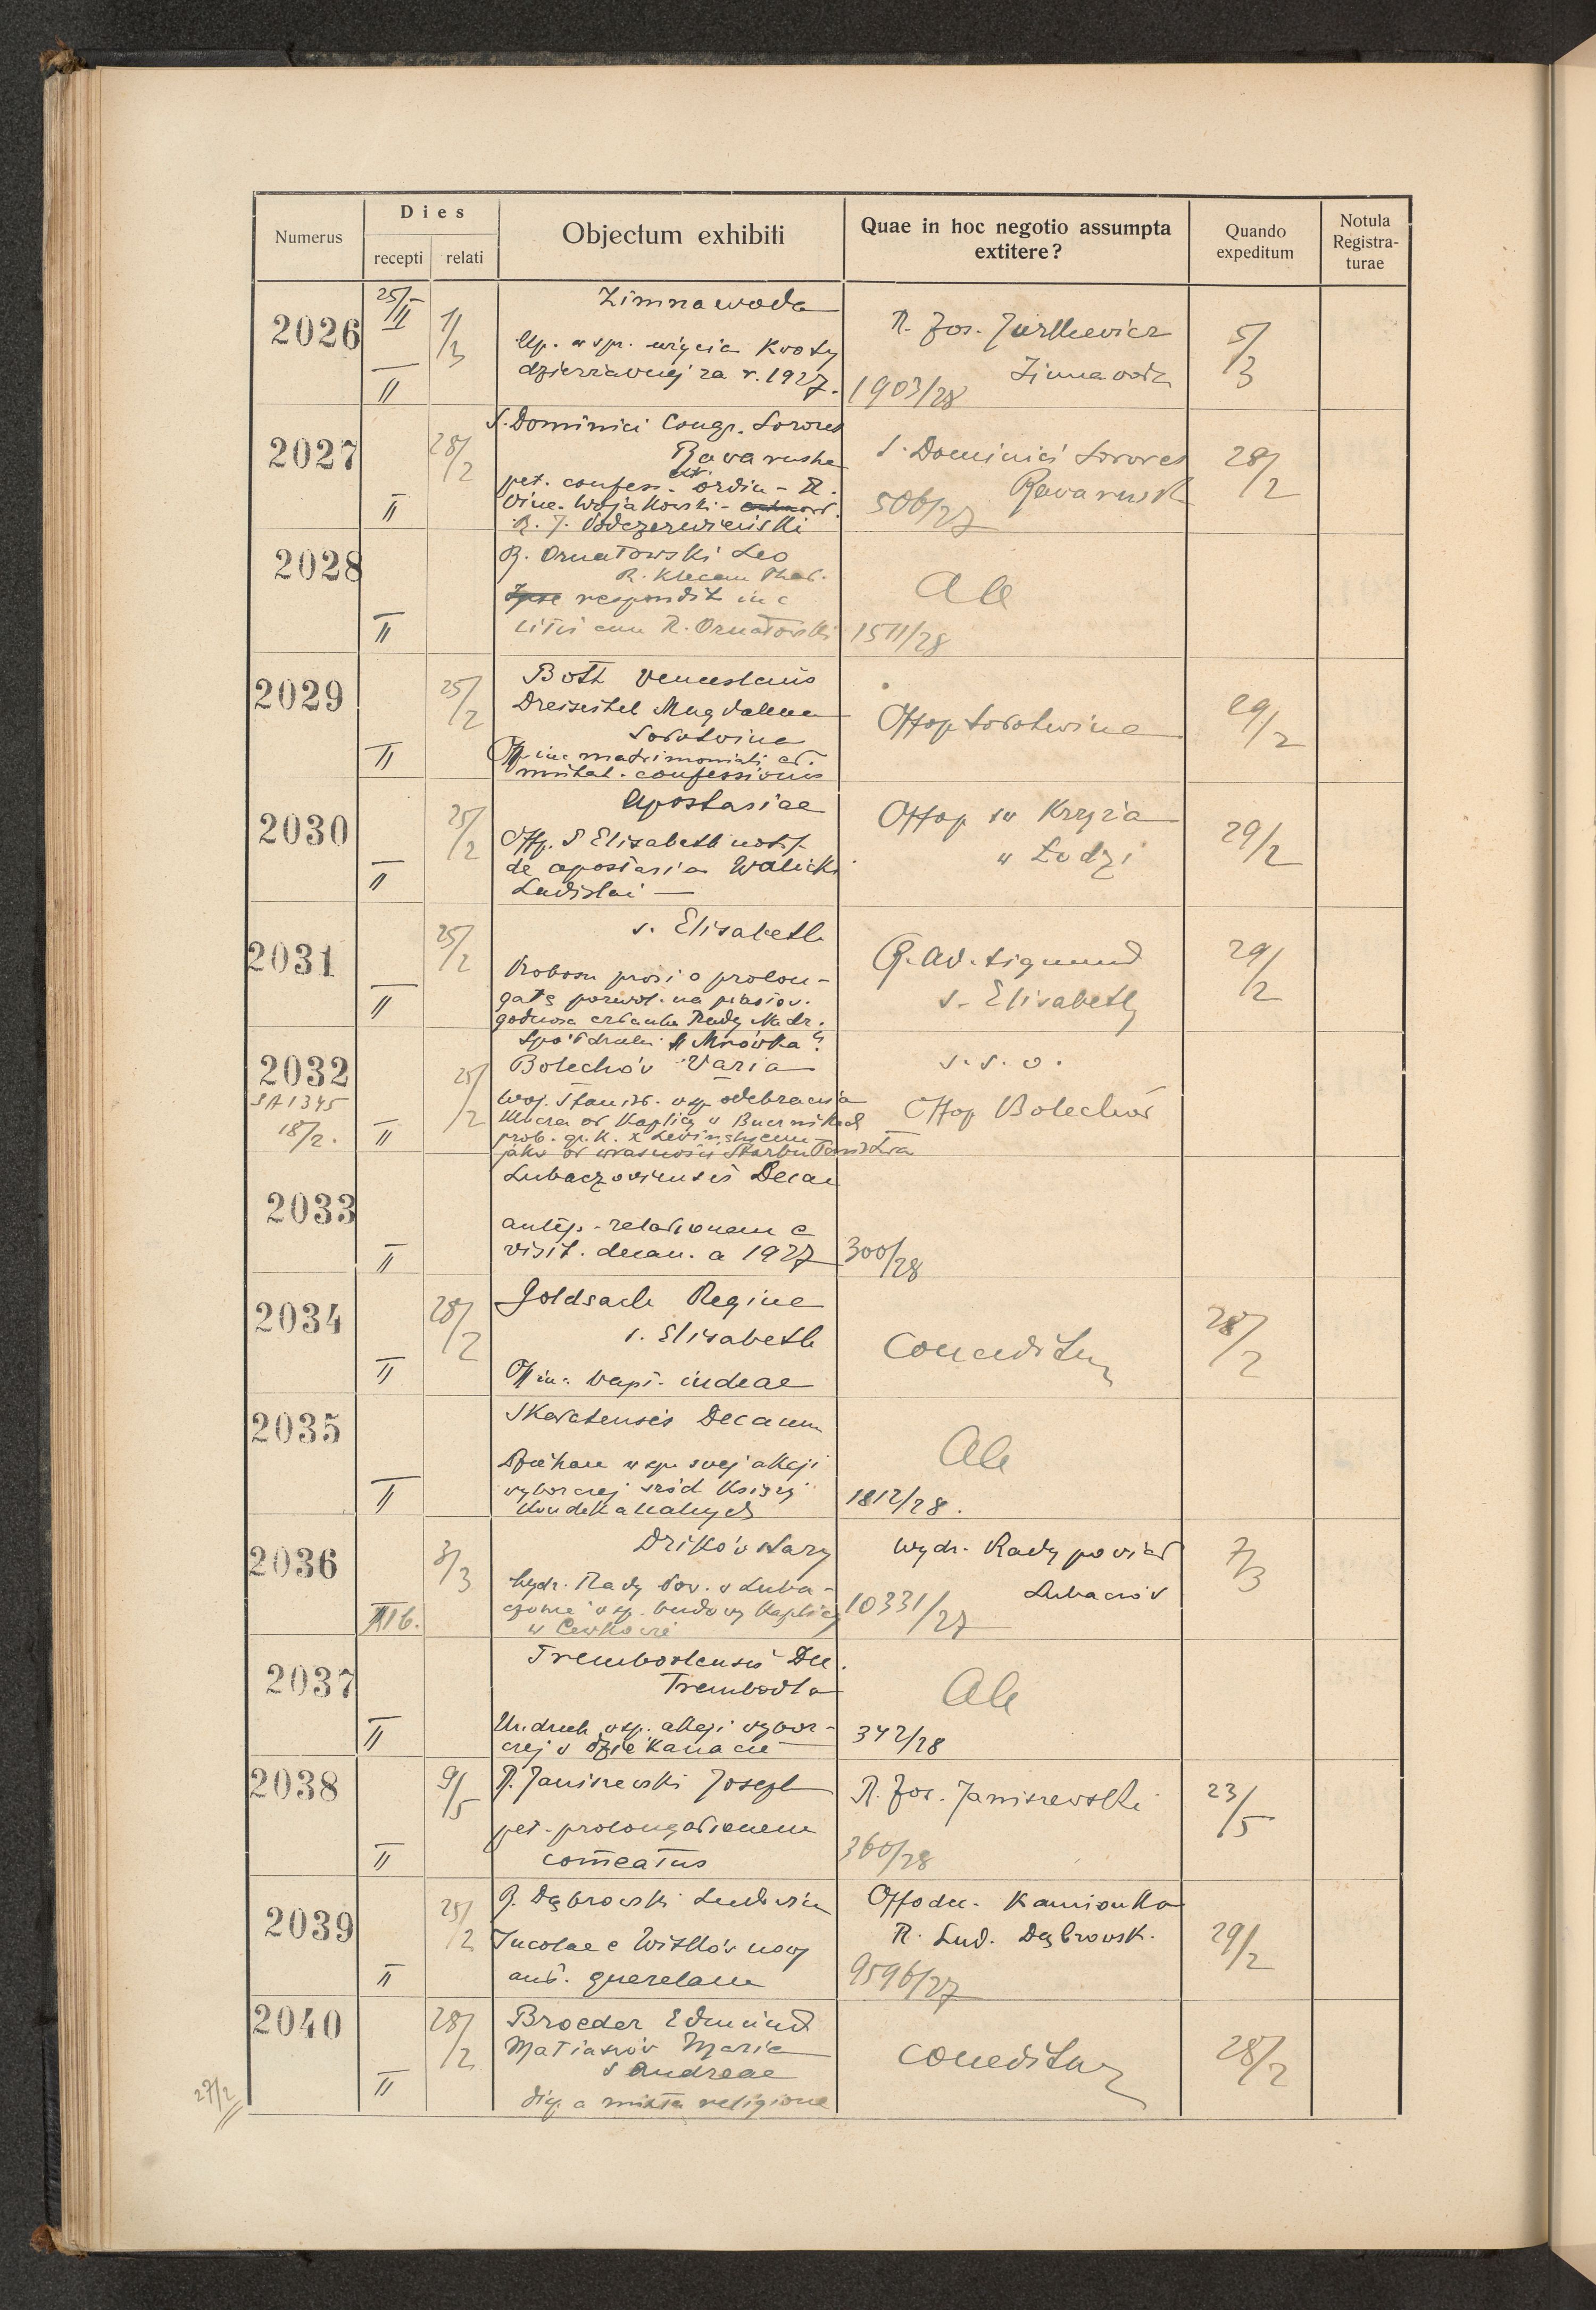 Numerus
Dies
recepti
relati
Objectum exhibiti
Quae in hoc negotio assumpta
extitere?
Quando
expeditum
Notula
Registra-
turae
2026
25/II
II
1/3
Zimnawoda
użycia kwoty
dzierżawnej za r. 1927.
R. Jos. Jurkiewicz
Zimnawoda
1903/28
5/3
2027
II
28/2
S. Dominici Congr. Sorores
Rawaruska
pet. confess. ordin - R.
Vinc. Wojakowski -
R. J. Podczerwieński
S. Dominici Sorores
Rawarusk
506/27
28/2
2028
II
R. Ornatowski Leo
R. Klecan Thad.
respondit in c
litis cum R. Ornatowski
Ala
1511/28
2029
II
25/2
Both Venceslaus
Dreiseitel Magdalena
Sołotwina
matrimonii
mutat. confessionis
Offop Sołotwina
29/2
2030
II
25/2
Apostasiae
Offp. S Elisabeth notif.
de apostasia Walicki
Ladislai —
Offop św Krzyża
w Łodzi
29/2
2031
II
25/2
s. Elisabeth
Proboszcz prosi o prolon-
gatę pozwol. na piastow.
godności członka Rady Nadz.
Spółdzielni "Mrówka"
R. Ad. Sigmund
S. Elisabeth
29/2
2032
SA 1345
18/2.
II
25/2
Bolechów Varia
Woj. Stanisł. wsp. odebrania
klucza od kaplicy w Bubniskach
prob. gr. k. x Lewinskiemu
jako od własności Skarbu Państwa
s. s. o.
Offop Bolechów
2033
II
Lubaczoviensis Decan
relationem e
visit. decan. a 1927
300/28
2034
II
28/2
Goldsach Regine
s. Elisabeth
bapt. iudeae
Conceditur
28/2
2035
II
Skalatensis Decanus
Dziekan w sp. swej akcji
wyborczej śród księży
kondekanalnych
Ala
1812/28.
2036
IIIb.
3/3
Dzików stary
Wydz. Rady Pow. w Luba-
czowie w sp. budowy kaplicy
w Cewkowie
Wydz. Rady powiat
Lubaczów
10331/27
7/3
2037
II
Trembovlensis Dec.
Trembowla
wsp. akcji wybor-
czej w dziekanacie
Ala
342/28
2038
II
9/5
R. Janiszewski Joseph
pet. prolongationem
comeatus
R. Jos. Janiszewski
360/28
23/5
2039
II
25/2
R. Dąbrowski Ludovicu
Incolae e Witków nowy
querelam
Offo dec. Kamionka
R. Lud. Dąbrowsk.
9596/27
29/2
2040
II
28/2
Broeder Edmund
Matiaszów Maria
S Andreae
disp a mixta religione
conceditur
28/2
27/2